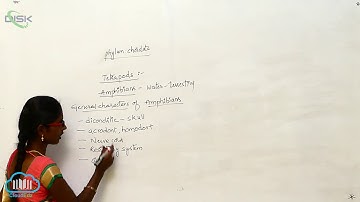 DISK
phylum chordata
Tetrapods :-
Amphibians - water-
General characters of Amphibians
- dicondilic - skull
- acrodont, homodont
- Nerve
- system